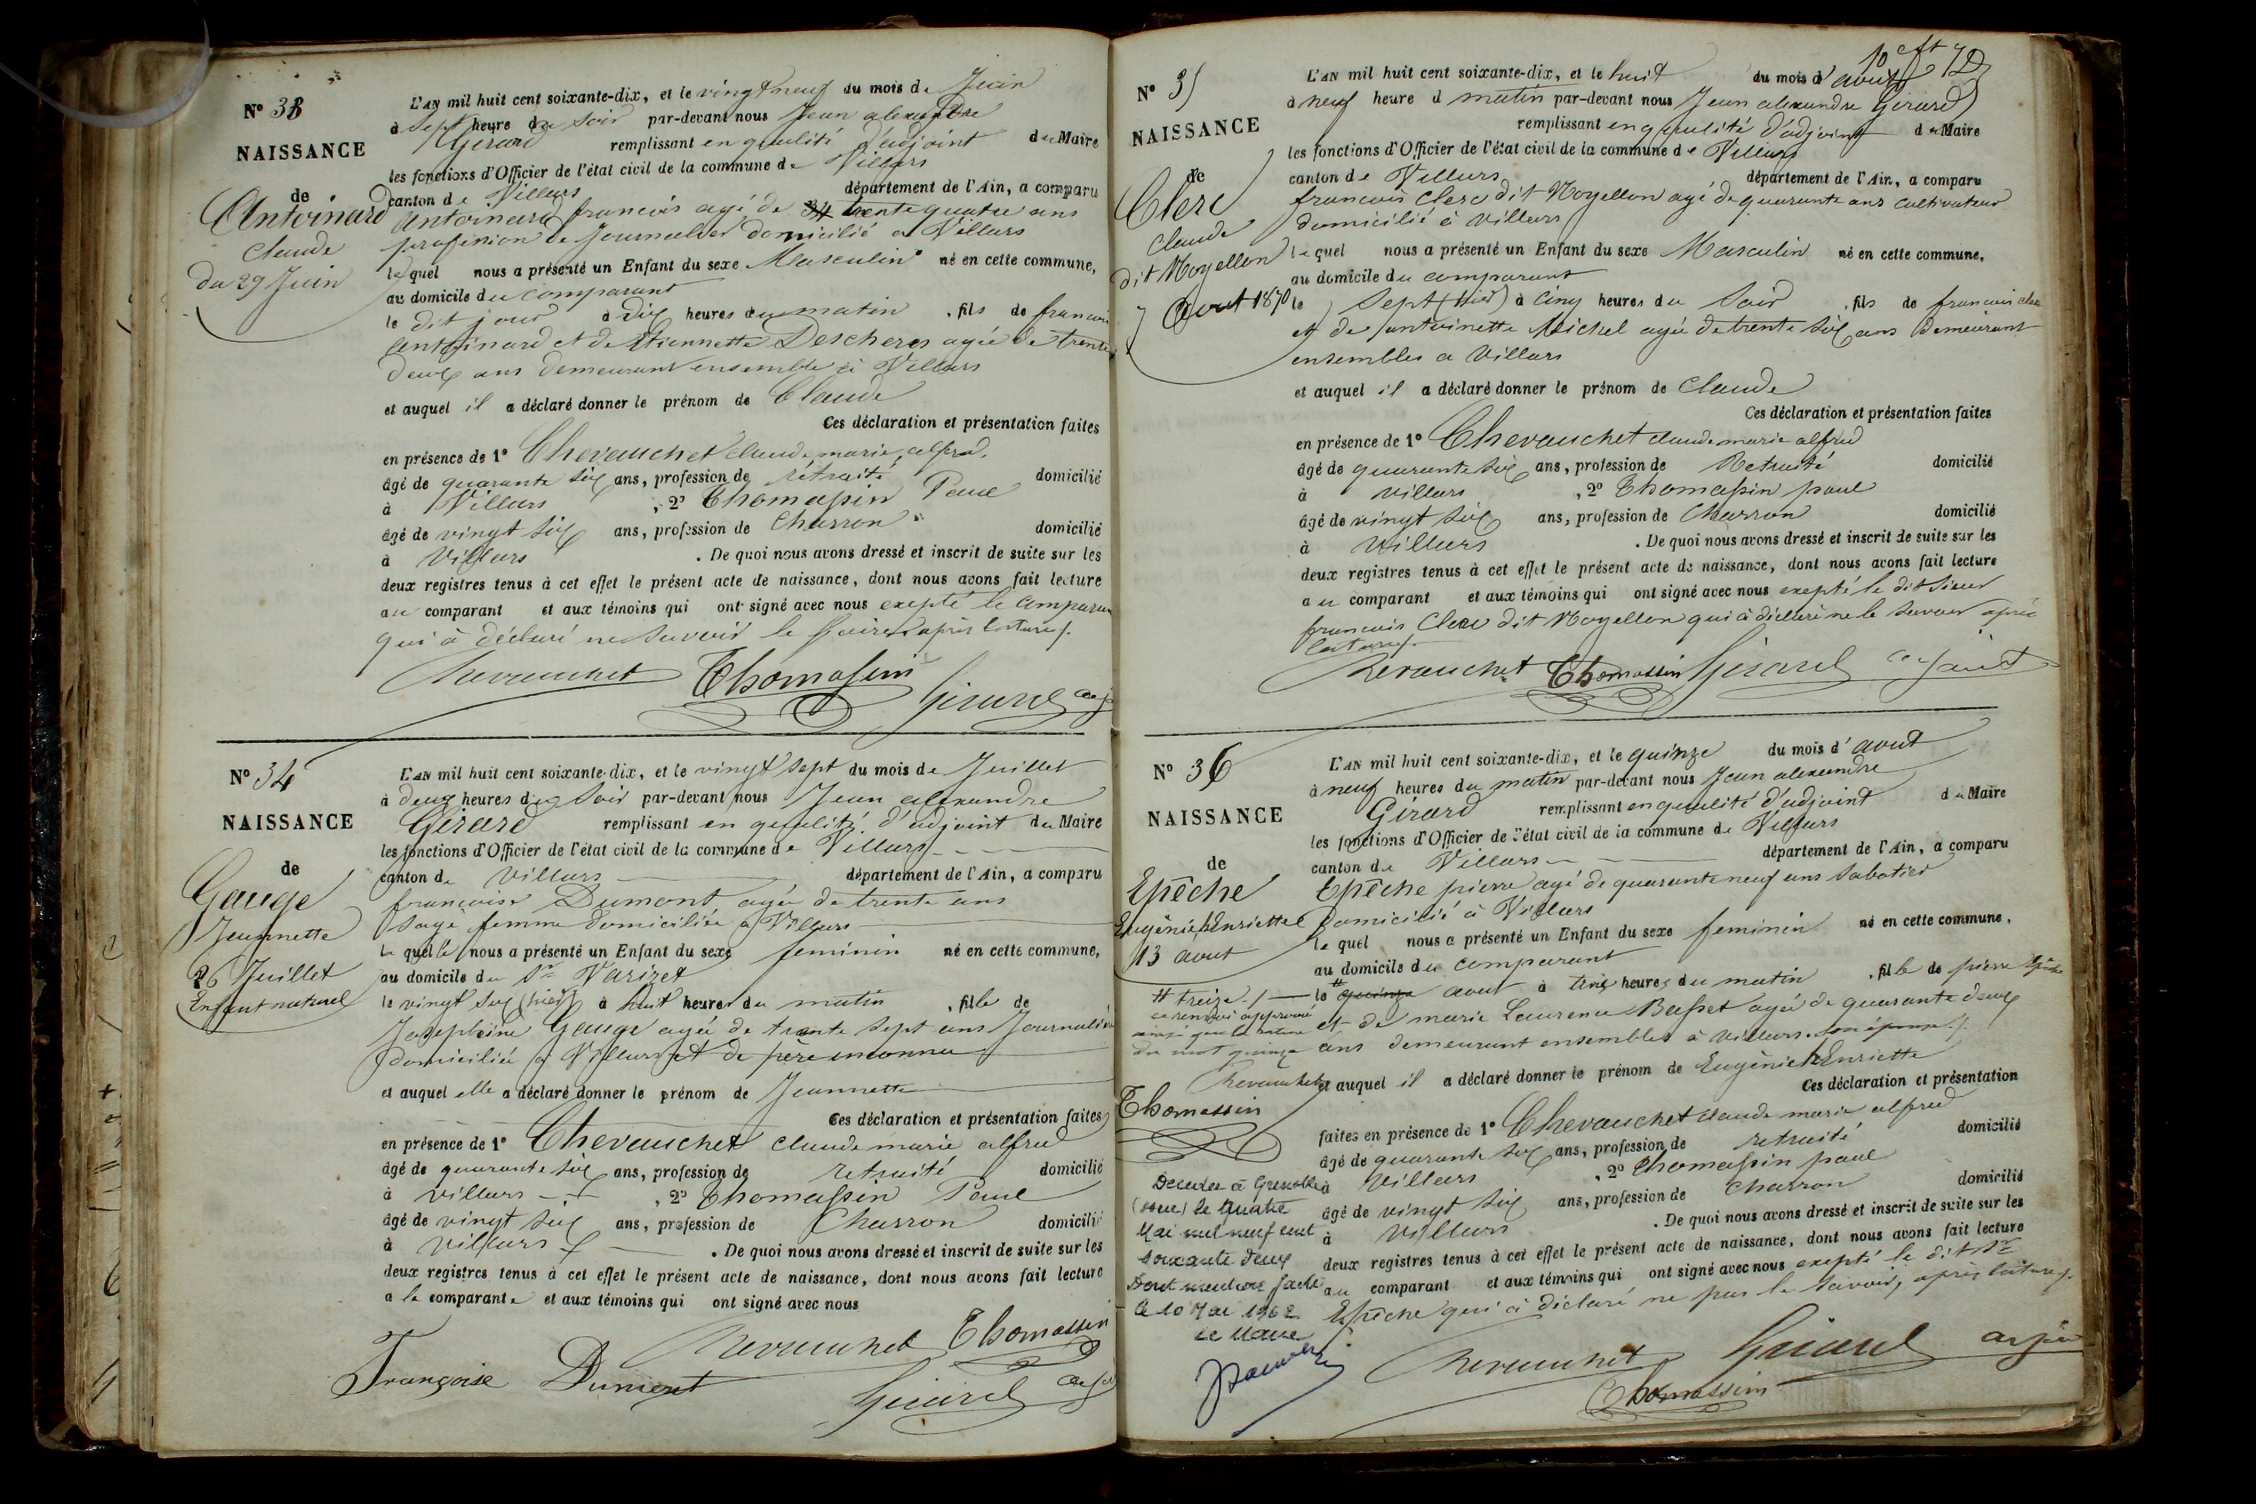 N° 33
NAISSANCE
de
Antoinard
Claude
du 29 Juin
L'AN mil huit cent soixante-dix, et le vingt neuf du mois de Juin
à sept heure du soir par-devant nous Jean alexandre
Girard remplissant en qualité d'adjoint du Maire
les fonctions d'Officier de l'état civil de la commune de Villars
canton de Villars département de l'Ain, a comparu
antoinard francois agé de trente quatre ans
profession de Journalier domicilié a Villars
lequel nous a présenté un Enfant du sexe Masculin né en cette commune,
au domicile du comparant
le dit jour à dix heures du matin , fils de francois
antoinard et de Etiennette Descheres agée de trente
deux ans demeurant ensemble à Villars
et auquel il a déclaré donner le prénom de Claude
Ces déclaration et présentation faites
en présence de 1° Chevauchet claude marie alfred
âgé de quarante six ans, profession de retraité domicilié
à Villars , 2° Thomassin Paul
âgé de vingt six ans, profession de Charron domicilié
à Villars . De quoi nous avons dressé et inscrit de suite sur les
deux registres tenus à cet effet le présent acte de naissance, dont nous avons fait lecture
au comparant et aux témoins qui ont signé avec nous exepté le comparant
qui à déclaré ne savoir le faire après lecture
Chevauchet Thomassin Girard adj
N° 34
NAISSANCE
de
Gauge
Jeannette
26 Juillet
Enfant naturel
L'AN mil huit cent soixante-dix, et le vingt sept du mois de Juillet
à deux heures du soir par-devant nous Jean alexandre
Girard remplissant en qualité d'adjoint du Maire
les fonctions d'Officier de l'état civil de la commune de Villars
canton de Villars département de l'Ain, a comparu
francoise Dumont agée de trente ans
sage femme domiciliée a Villars
la quelle nous a présenté un Enfant du sexe feminin né en cette commune,
au domicile du Sr Varizet
le vingt six (hier) à huit heures du matin , fille de
Josephine Gauge agée de trente sept ans Journalière
domiciliée a Villars et de père inconnu
et auquel elle a déclaré donner le prénom de Jeannette
Ces déclaration et présentation faites
en présence de 1° Chevauchet claude marie alfred
âgé de quarante six ans, profession de retraité domicilié
à Villars , 2° Thomassin Paul
âgé de vingt six ans, profession de Charron domicilié
à Villars . De quoi nous avons dressé et inscrit de suite sur les
deux registres tenus à cet effet le présent acte de naissance, dont nous avons fait lecture
a la comparante et aux témoins qui ont signé avec nous
Chevauchet Thomassin
Françoise Dumont Girard adj
N° 35
NAISSANCE
de
Clerc
Claude
dit Moyellon
7 Aout 1870
L'AN mil huit cent soixante-dix, et le huit du mois d'aout
à neuf heure d matin par-devant nous Jean alexandre Girard
remplissant en qualité d'adjoint du Maire
les fonctions d'Officier de l'état civil de la commune de Villars
canton de Villars département de l'Ain, a comparu
francois Clerc dit Moyellon agé de quarante ans cultivateur
domicilié à Villars
lequel nous a présenté un Enfant du sexe Masculin né en cette commune,
au domicile du comparant
le sept (hier) à cinq heures du soir , fils de francois clerc
et de antoinette Michel agée de trente six ans demeurant
ensembles a Villars
et auquel il a déclaré donner le prénom de claude
Ces déclaration et présentation faites
en présence de 1° Chevauchet claude marie alfred
âgé de quarante six ans, profession de Retraité domicilié
à Villars , 2° Thomassin paul
âgé de vingt six ans, profession de Charron domicilié
à Villars . De quoi nous avons dressé et inscrit de suite sur les
deux registres tenus à cet effet le présent acte de naissance, dont nous avons fait lecture
au comparant et aux témoins qui ont signé avec nous exepté le dit sieur
francois Clerc dit Moyellon qui à déclaré ne le savoir après
lecture
Chevauchet Thomassin Girard adjoint
N° 36
NAISSANCE
de
Epêche
Eugènie Henriette
13 aout
L'AN mil huit cent soixante-dix, et le quinze du mois d'aout
à neuf heures du matin par-devant nous Jean alexandre
Girard remplissant en qualité d'adjoint du Maire
les fonctions d'Officier de l'état civil de la commune de Villars
canton de Villars département de l'Ain, a comparu
Epêche pierre agé de quarante neuf ans sabotier
domicilié à Villars
lequel nous a présenté un Enfant du sexe feminin né en cette commune,
au domicile du comparant
le quinze aout à trois heures du matin , fille de pierre Epêche
et de marie Laurence Basset agée de quarante deux
ans demeurant ensembles à Villars. son épouse
# treize
ce renvoi approuvé
ainsi que la rature
du mot quinze
Chevauchet
Thomassin
et auquel il a déclaré donner le prénom de Eugènie Henriette
Ces déclaration et présentation
faites en présence de 1° Chevauchet claude marie alfred
âgé de quarante six ans, profession de retraité domicilié
à Villars , 2° Thomassin paul
âgé de vingt six ans, profession de charron domicilié
à Villars . De quoi nous avons dressé et inscrit de suite sur les
deux registres tenus à cet effet le présent acte de naissance, dont nous avons fait lecture
au comparant et aux témoins qui ont signé avec nous exepté le dit Sr
Epêche qui à déclaré ne pas le savoir, après lecture
Décédée à Grenoble
(Isère) le quatre
Mai mil neuf cent
soixante deux
Dont mention faite
le 10 Mai 1962
Le Maire
Chevauchet Girard adjoint
Thomassin